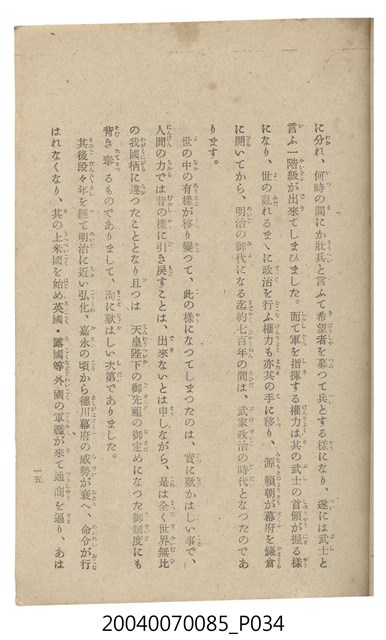 に分れ、何時の間にか壯兵と言ふて希望者を募つて兵とする樣になり、遂には武士と
言ふ一階級が出來てしまひました。而て軍を指揮する權力は其の武士の首領が握る樣
になり、世の亂れるまゝに政治を行ふ權力も亦其の手に移り、源頼朝が幕府を鎌倉
に開いてから、明治の御代になる迄約七百年の間は、武家政治の時代となつたのであ
ります。
世の中の有樣が移り變つて、此の樣になつてしまつたのは、實に歎かはしい事で、
人間の力では昔の樣に引き戻すことは、出來ないとは申しながら、是は全く世界無比
の我國柄に違つたこととなり且つは　天皇陛下の御先祖の御定めになつた御制度にも
背き奉るものでありまして、洵に歎はしい次第でありました。
其後段々年を經て明治に近い弘化、嘉永の頃から德川幕府の威勢が衰へ、命令が行
はれなくなり、其の上米國を始め英國・露國等外國の軍艦が來て通商を逼り、あは
一五
20040070085_P034